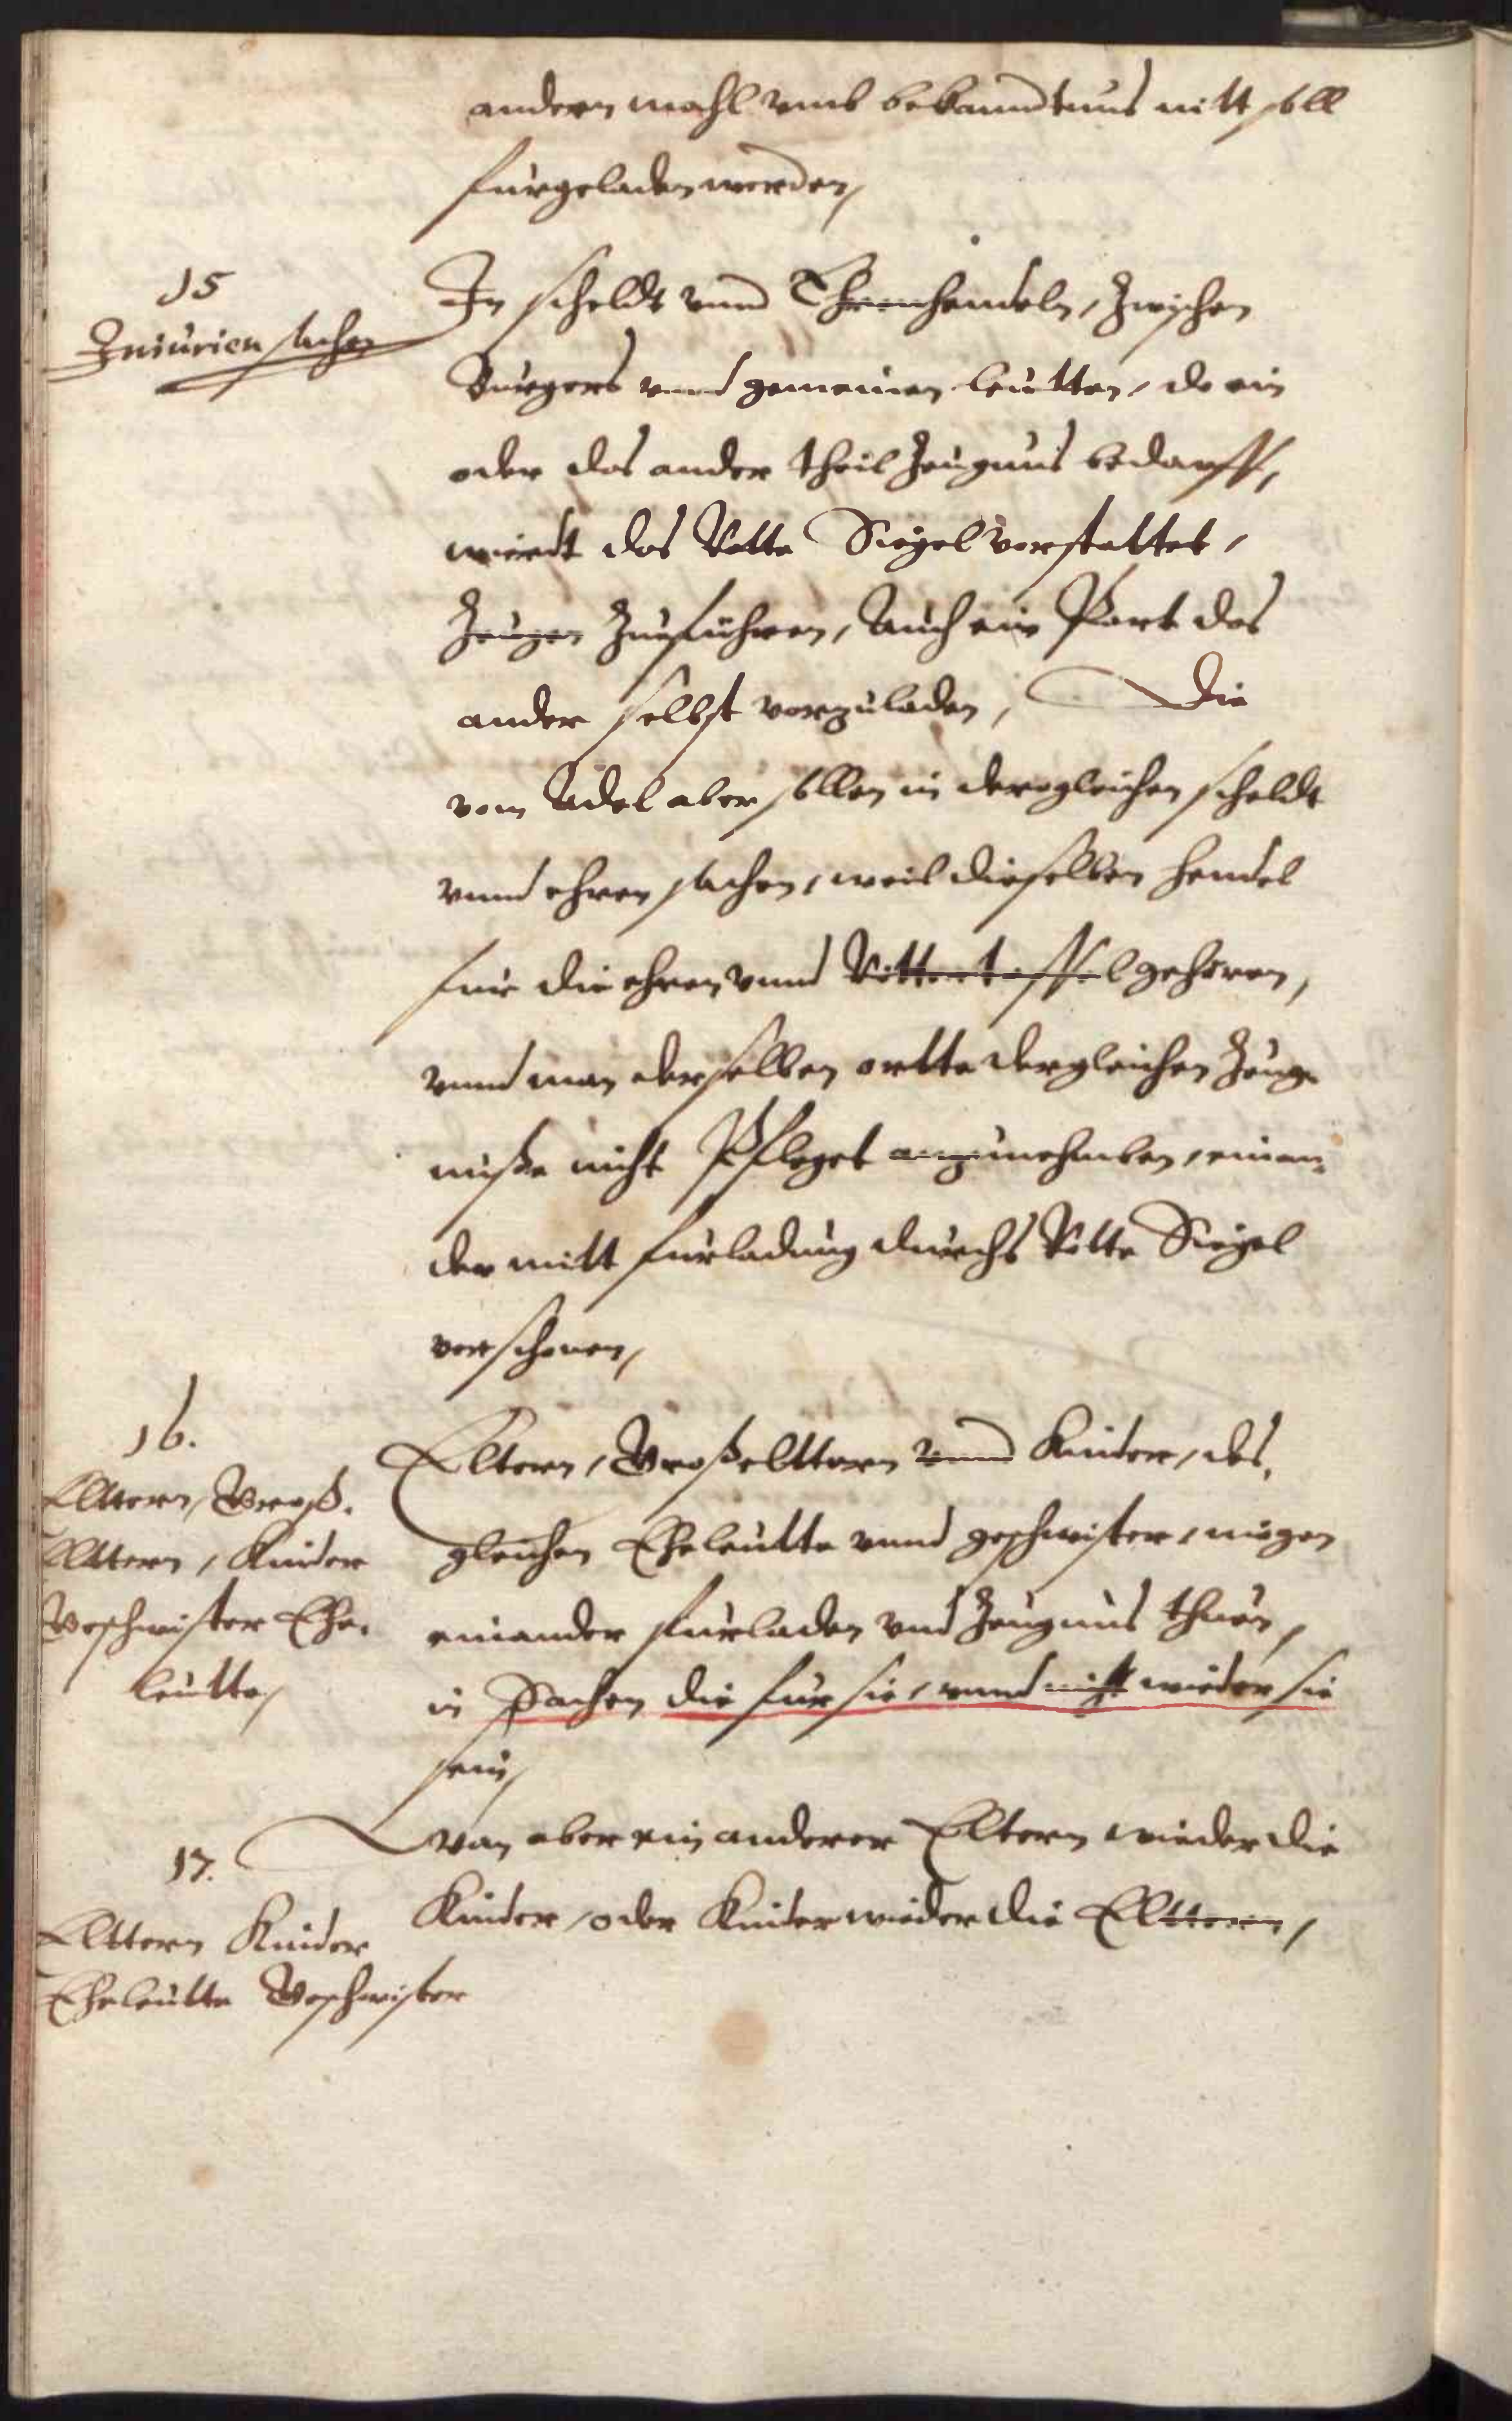 andern mahl umb bekanndtnus nitt soll
furgeladen werden,
15
Iniurien sachen
In scheldt unnd Ehrenhendeln, Zwischen
Burgers unnd gemeinen leutten, do ein
oder das ander theil Zeugnus bedarff,
wierdt das Rotte Siegel verstattet,
Zeugen Zu führen, Auch ein Part das
ander selbst vorzuladen, Die
vom Adel aber sollen in deregleichen scheldt
unnd ehren sachen, weil dieselben hendel
fur die ehren unnd Rittertaffel gehören,
unnd man derselben ortte dergleichen Zeug-
nusße nicht Pfleget anzunehmben, einan-
der mitt furladung durchs Rotte Siegel
verschonen,
16.
Elttern, Groß-
Elttern, Kinder
Geschwister Ehe-
leutte,
Eltern, Großelttern unnd Kinder, des-
gleichen Eheleutte unnd geschwister, mögen
einander furladen und Zeugnus thuen,
in Sachen die fur sie, unnd nicht wieder sie
sein,
17.
Elttern Kinder
Eheleutte Geschwister
Wan aber ein anderer Eltern wieder die
Kinder, oder Kinder wieder die Elttern,